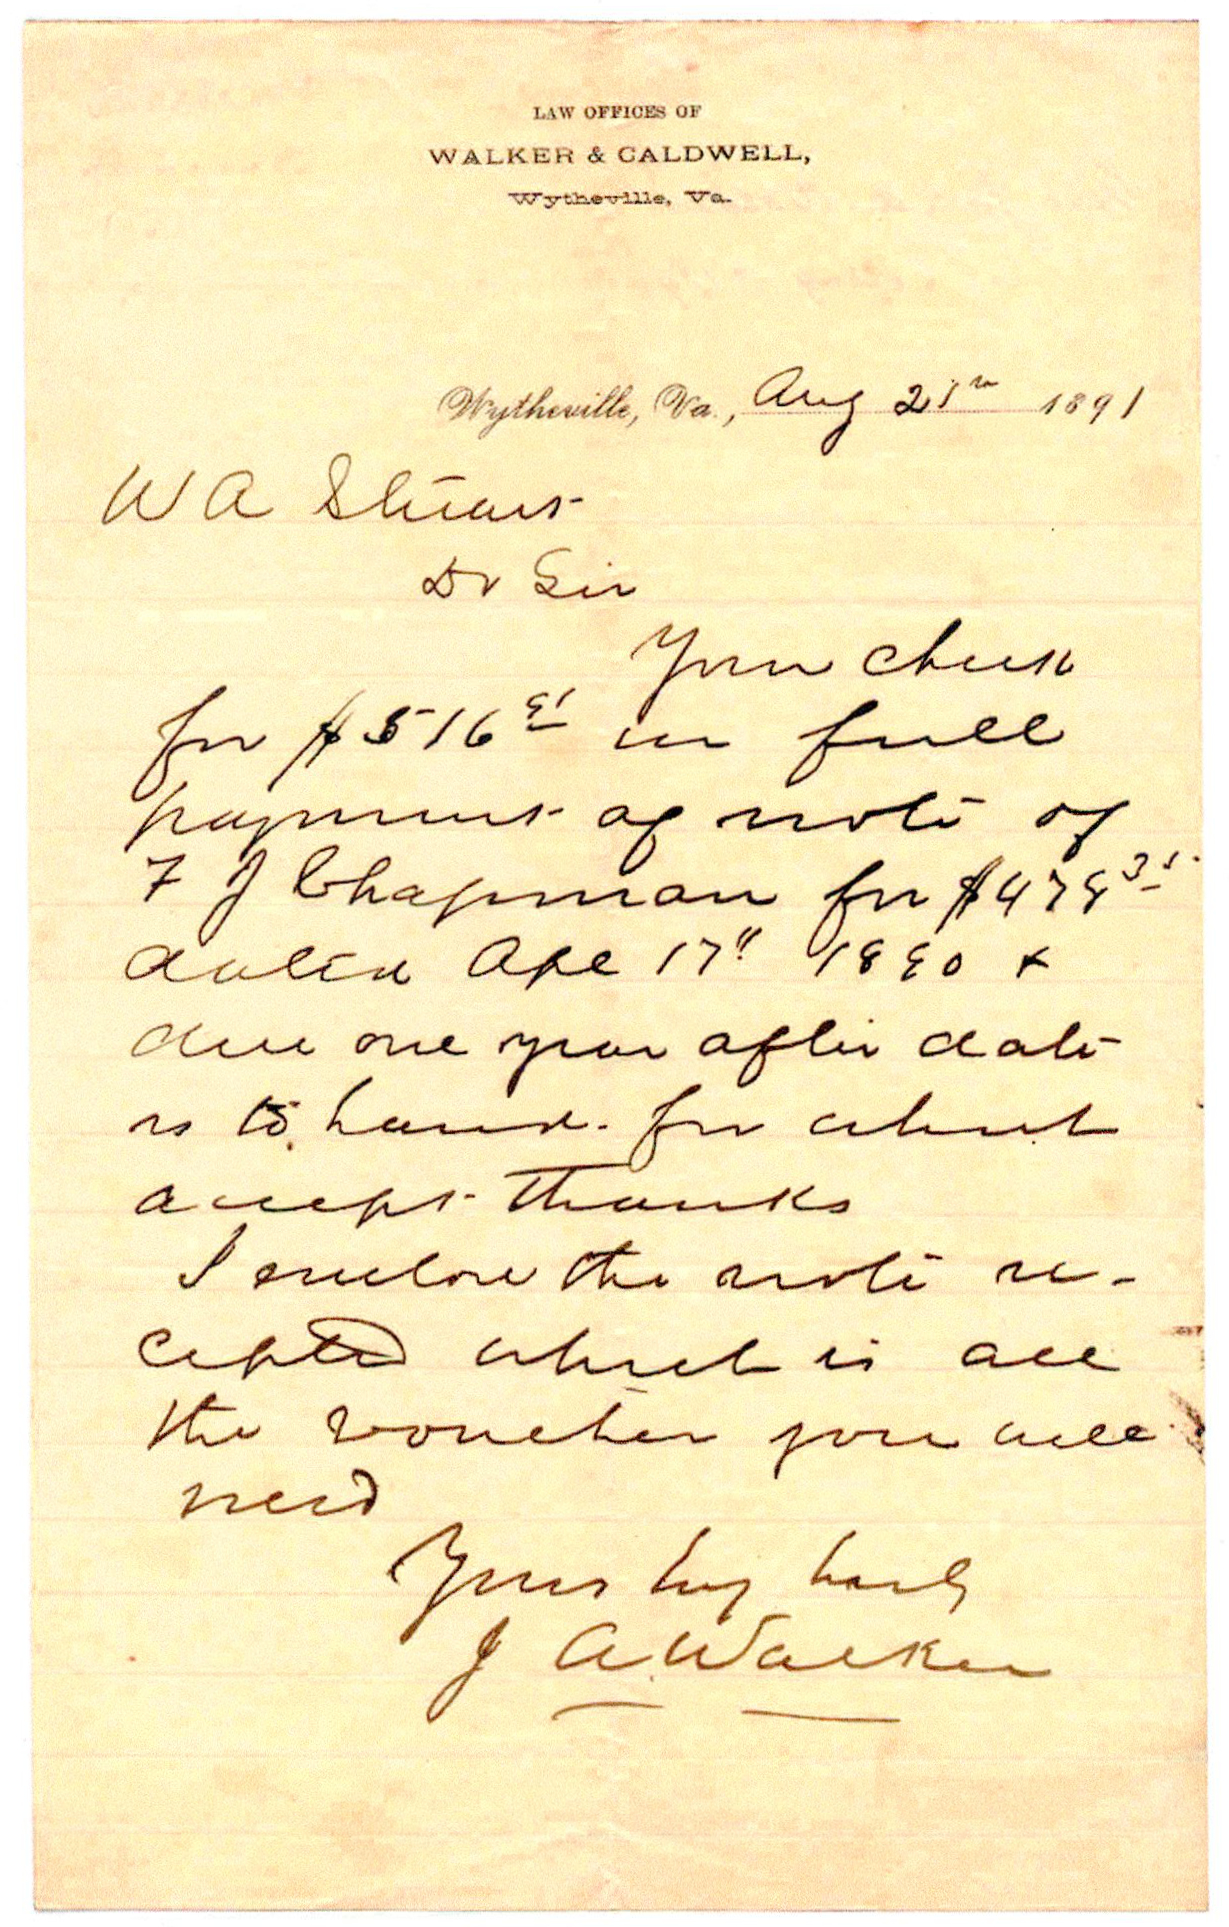 LAW OFFICES OF
WALKER & CALDWELL,
Wytheville, Va.
Wytheville, Va., Aug 21st 1891
W A Stuart
Dr Sir
Your check
for $516 in full
payment of note of
F J Chapman for $478
dated Apl 17" 1890 &
due one year after date
is to hand. for which
accept thanks
I enclose the note re-
cepted which is all
the voucher you will
need
Yours
J A Walker